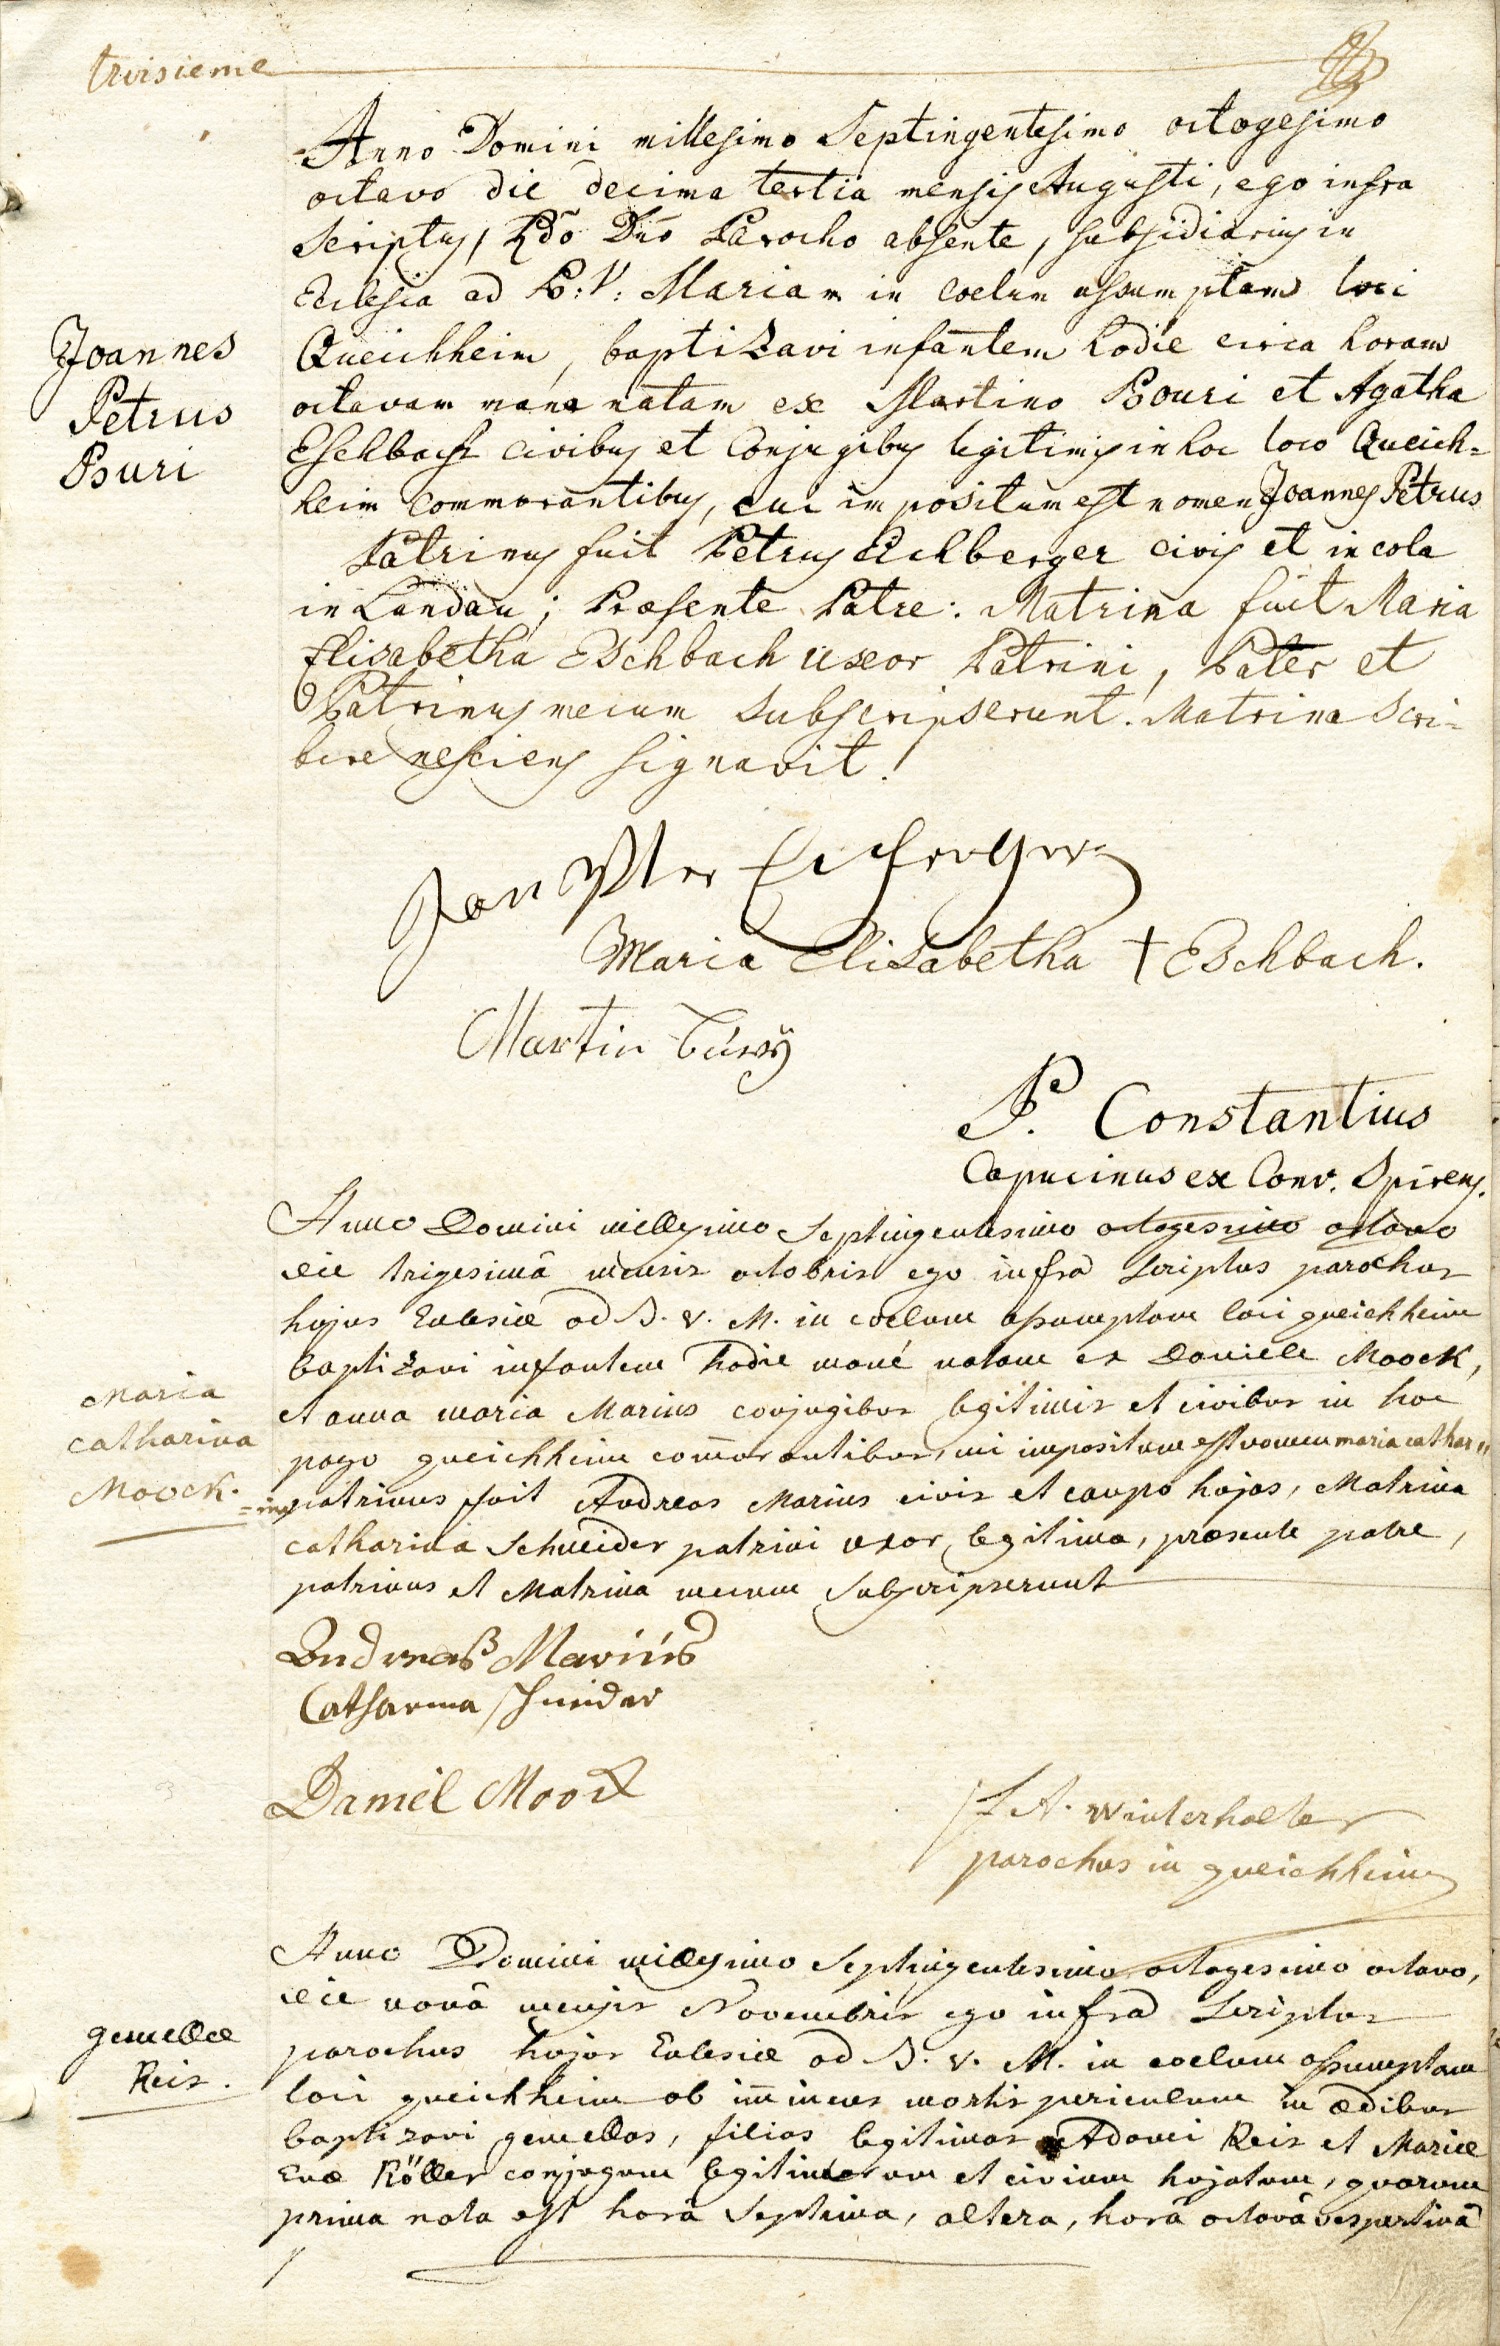 troisieme
Anno Domini millesimo Septingentesimo octogesimo
octavo die decima tertia mensis Augusti, ego infra
scriptus, Rdo Dno Parocho absente, subsidiarius in
Ecclesia ad B: V: Mariam in coelum assumptam loci
Queichheim, baptizavi infantem hodie circa horam
octavam mane natam ex Martino Bouri et Agatha
Eschbach civibus et Conjugibus legitimis in hoc loco Queich=
heim commorantibus, cui impositum est nomen Joannes Petrus
Joannes
Petrus
Buri
Patrinus fuit Petrus Eichberger civis et incola
in Landau; Praesente Patre: Matrina fuit Maria
Elisabetha Eschbach uxor Patrini, Pater et
Patrinus mecum subscripserunt. Matrina Scri=
bere nesciens signavit!
Maria Elisabetha † Eschbach.
Martin Burÿ
P. Constantius
Capucinus ex Conv. Spirens.
Anno Domini millesimo Septingentesimo octogesimo octavo
die trigesimâ mensis octobris ego infra Scriptus parochus
hujus Eclesiæ ad B. V. M. in coelum assumptam loci queichheim
baptizavi infantem hodie mané natam ex Daniele Moock,
et anna maria Marius conjugibus legitimis et civibus in hoc
pago queichheim comorantibus, cui impositum est nomen maria cathar"
=ina patrinus fuit Andreas Marius civis et caupo hujas, Matrina
catharina Schneider patrini uxor legitima, praesente patre,
patrinus et Matrina mecum Subscripserunt
Maria
catharina
Moock.
Andreas Marius
Catharina Schneider
Daniel Moock
F A. Winterhalter
parochus in queichheim
Anno Domini millesimo Septingentesimo octogesimo octavo,
die nonâ mensis Novembris ego infra Scriptus
parochus hujus Eclesiæ ad B. V. M. in coelum assumptam
loci queichheim ob iminens mortis periculum in ædibus
baptizavi gemellas, filias legitimas Adami Reis et Mariæ
Evæ Röller conjugum legitimorum et civium hujatum, quarum
prima nata est horâ Septima, altera, horâ octavâ vespertinâ
gemellæ
Reis.